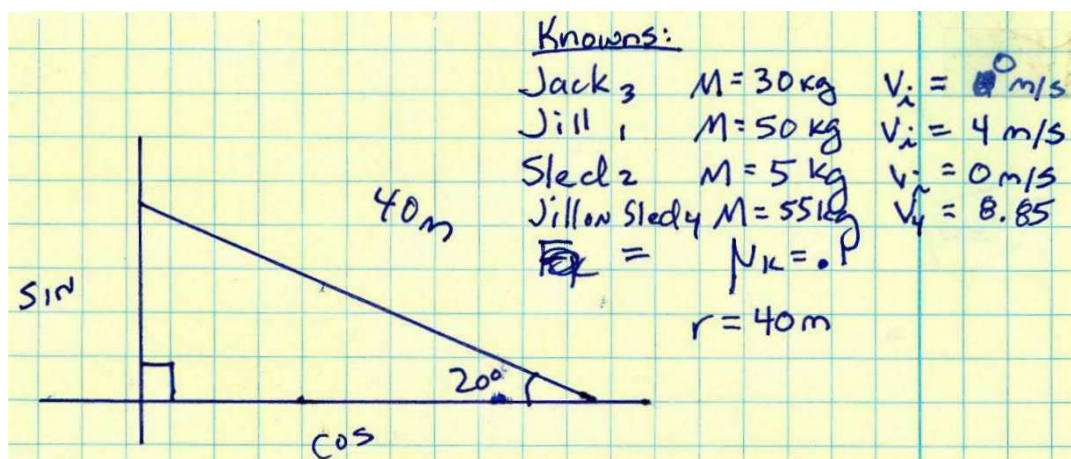 Knowns:
Jack 3 M = 30 kg Vi = 0 m/s
Jill 1 M = 50 kg Vi = 4 m/s
Sled 2 M = 5 kg Vi = 0 m/s
Jill on Sled 4 M = 55 kg V4 = 8.85
= μk = .1
r = 40 m
40 m
SIN
20°
cos